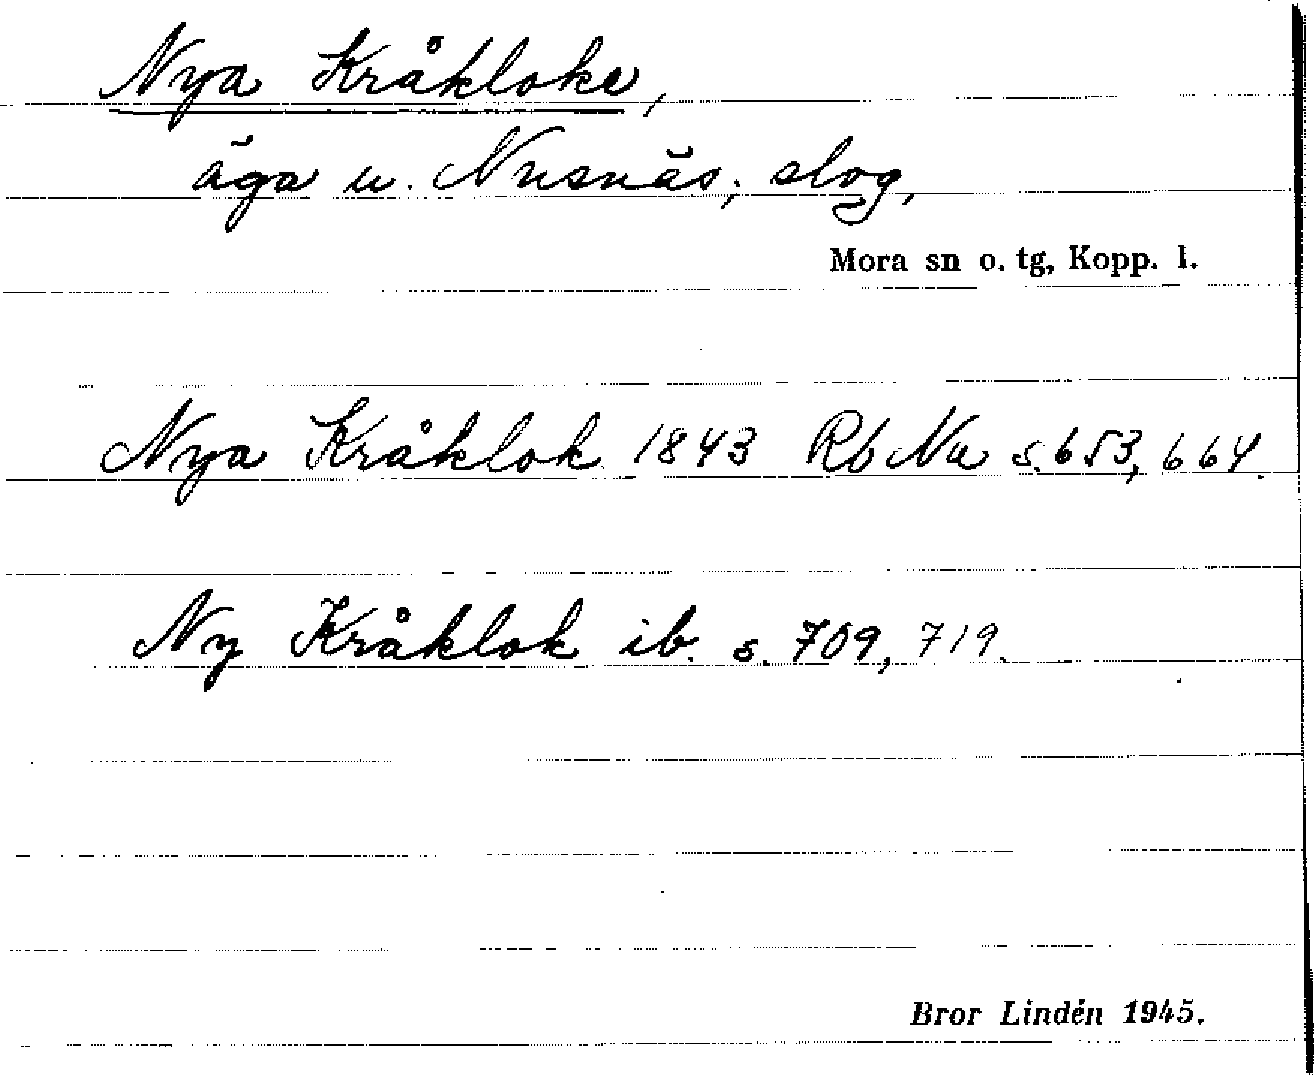 Nya Kråkloke,
äga u. Nusnäs; slog,
Mora sn o. tg, Kopp. l.
Nya Kråklok 1843 Rb Nu s. 653, 664.
Ny Kråklok ib. s. 709, 719.
Bror Lindén 1945.